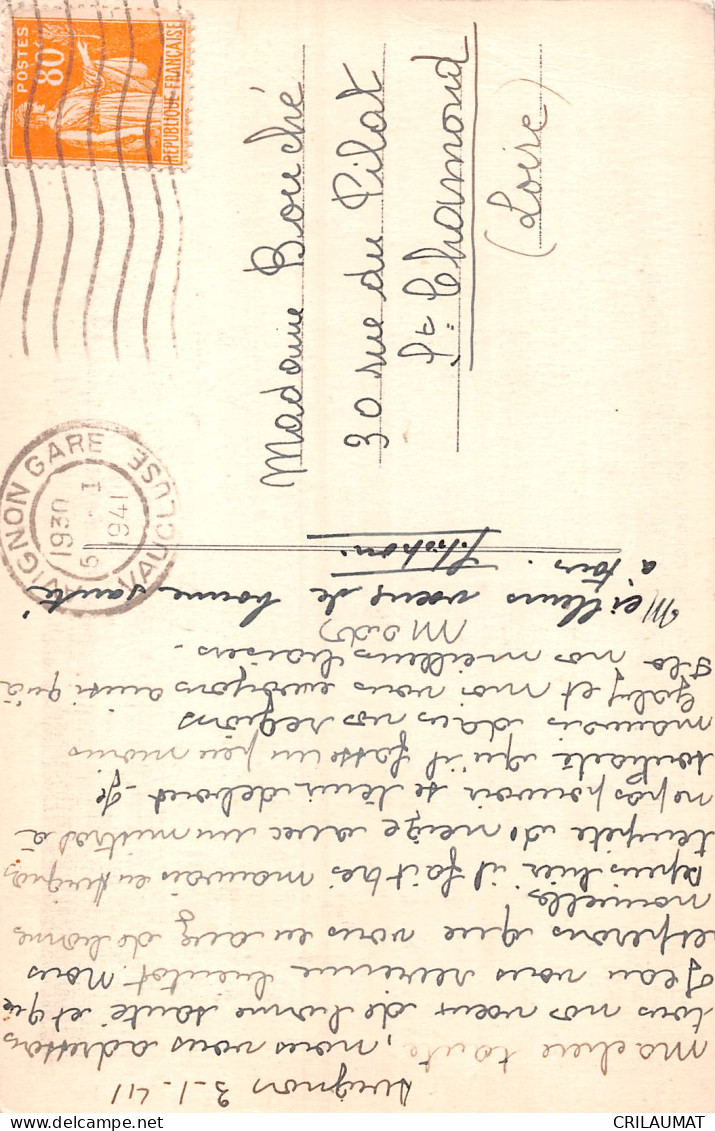 Avignon 3-1-41
Ma chère tante, nous vous adressons
tous nos vœux de bonne santé et que
Jean vous revienne bientôt. Nous
espérons que vous en avez de bonnes
nouvelles
Depuis hier il fait très mauvais en Avignon
tempête de neige avec un mistral à
ne pas pouvoir se tenir debout. Je
souhaite qu'il fasse un peu moins
mauvais dans vos régions
Gaby et moi vous envoyons ainsi qu'à
nos meilleurs baisers.
Mado
Meilleurs vœux de bonne santé
à tous.
POSTES
80c
REPUBLIQUE FRANÇAISE
AVIGNON GARE
1930
5 1
1941
VAUCLUSE
Madame Bouché
30 rue du Pilat
St Chamond
(Loire)
delcampe.net
CRILAUMAT